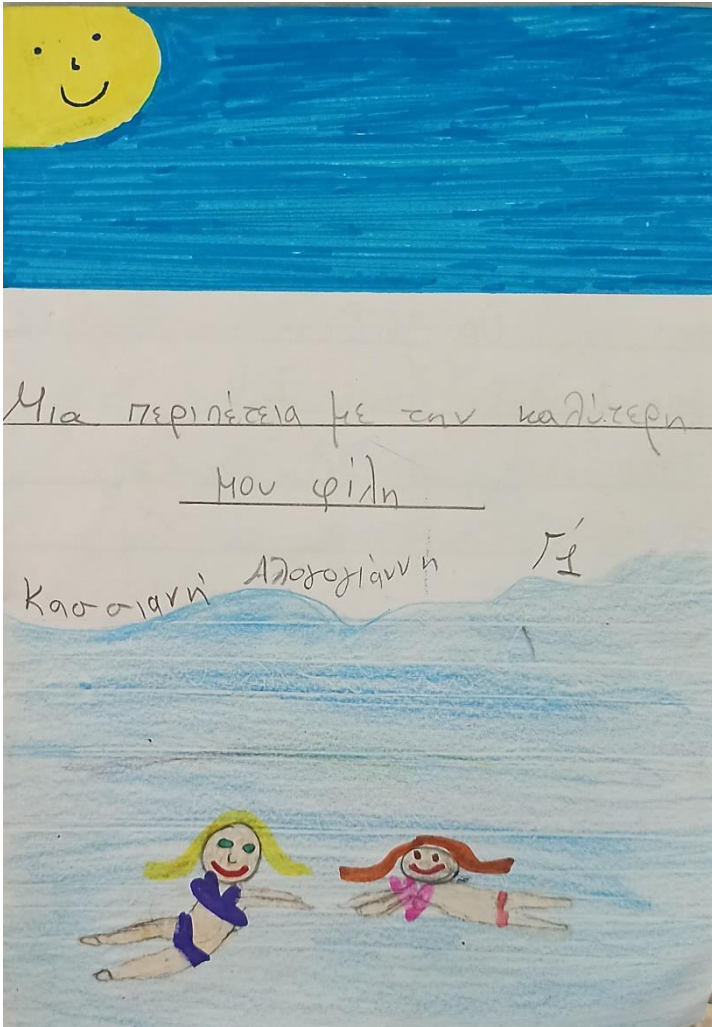 Μια περιπέτεια με την καλύτερη
μου φίλη
Κασσιανή Αλογογιάννη Γ1